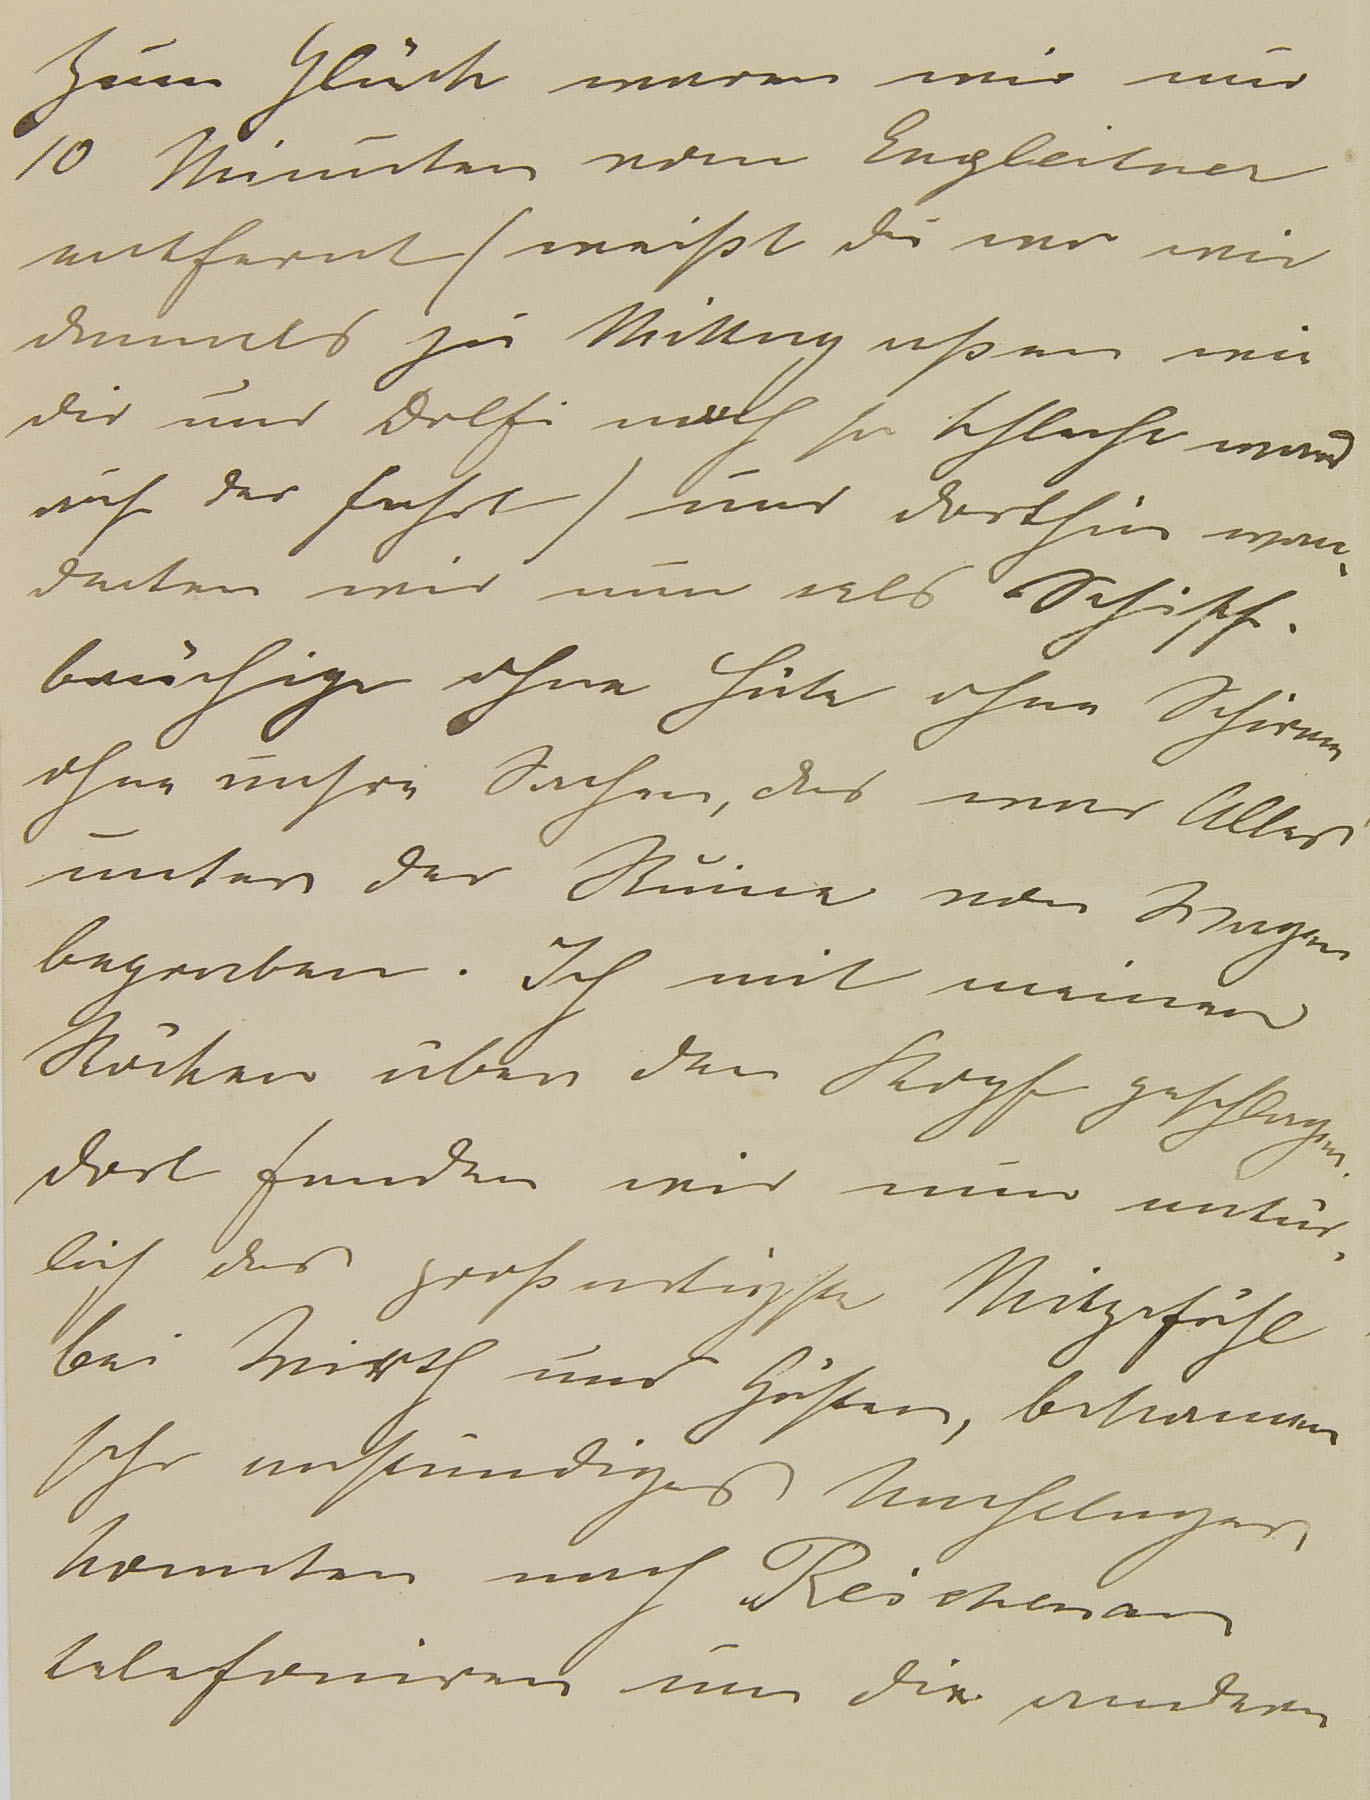 Zum Glück waren wir nur
10 Minuten vom Engleitner
entfernt (weißt du wo wir
damals zu Mittag aßen wie
dir und Dolfi noch so schlecht ward
auf der Fahrt) und dorthin wan-
derten wir nun als Schiff-
brüchige ohne Hüte ohne Schirm
ohne unsre Sachen, das war Alles
unter der Ruine von Wagen
begraben. Ich mit meinen
Röcken über den Kopf geschlagen.
dort fanden wir nun natür-
lich das großartigste Mitgefühl
bei Wirth und Gästen, bekamen
sehr anständiges Nachtlager,
konnten nach Reichenau
telefoniren um die andern